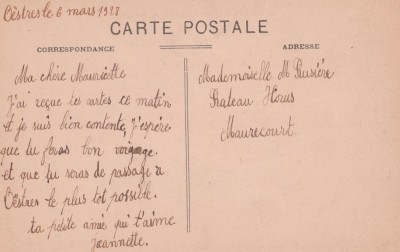 Cèstres le 6 mars 1928
CARTE POSTALE
CORRESPONDANCE
ADRESSE
Ma chère Mauricette
J'ai reçue tes cartes ce matin
et je suis bien contente, j'espère
que tu feras bon voyage.
et que tu seras de passage a
Cèstres le plus tot possible.
ta petite amie qui t'aime
Jeannette.
Mademoiselle M
Bateau
Maurecourt.